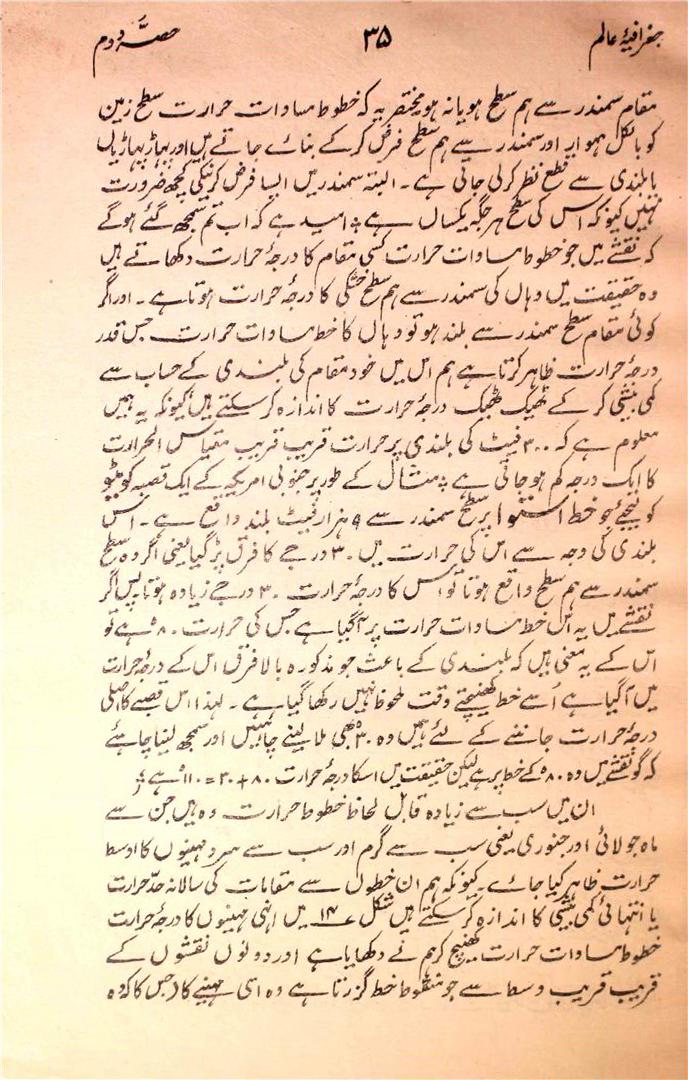 جغرافیۂ عالم ۳۵ حصہ دوم
مقام سمندر سے ہم سطح ہو یا نہ ہو مختصر یہ کہ خطوط مساوات حرارت سطح زمین
کو بالکل ہموار اور سمندر سے ہم سطح فرض کر کے بنائے جاتے ہیں اور پہاڑ پہاڑیاں
یا بلندی سے قطع نظر کر لی جاتی ہے ۔ البتہ سمندر میں ایسا فرض کرنیکی کچھ ضرورت
نہیں کیونکہ اس کی سطح ہر جگہ یکساں ہے ؞ امید ہے کہ اب تم سمجھ گئے ہوگے
کہ نقشے میں جو خطوط مساوات حرارت کسی مقام کا درجۂ حرارت دکھاتے ہیں
وہ حقیقت میں وہاں کی سمندر سے ہم سطح خشکی کا درجۂ حرارت ہوتا ہے ۔ اور اگر
کوئی مقام سطح سمندر سے بلند ہو تو وہاں کا خط مساوات حرارت جس قدر
درجۂ حرارت ظاہر کرتا ہے ہم اس میں خود مقام کی بلندی کے حساب سے
کمی بیشی کر کے ٹھیک ٹھیک درجۂ حرارت کا اندازہ کر سکتے ہیں کیونکہ یہ ہمیں
معلوم ہے کہ ۳۰۰ فیٹ کی بلندی پر حرارت قریب قریب مقیاس الحرارت
کا ایک درجہ کم ہو جاتی ہے ؞ مثال کے طور پر جنوبی امریکہ کے ایک قصبہ کویٹو
کو لیجئے جو خط استوا پر سطح سمندر سے ۹ ہزار فیٹ بلند واقع ہے ۔ اس
بلندی کی وجہ سے اس کی حرارت میں ۳۰ درجے کا فرق پڑ گیا یعنی اگر وہ سطح
سمندر سے ہم سطح واقع ہوتا تو اس کا درجۂ حرارت ۳۰ درجے زیادہ ہوتا پس اگر
نقشے میں یہ اس خط مساوات حرارت پر آگیا ہے جس کی حرارت ۸۰° ہے تو
اس کے یہ معنی ہیں کہ بلندی کے باعث جو مذکورہ بالا فرق اس کے درجۂ حرارت
میں آگیا ہے اُسے خط کھینچتے وقت ملحوظ نہیں رکھا گیا ہے ۔ لہذا اس قصبے کا اصلی
درجۂ حرارت جاننے کے لئے ہمیں وہ ۳۰° بھی ملا لینے چاہئیں اور سمجھ لینا چاہئے
کہ گو نقشے میں وہ ۸۰° کے خط پر ہے لیکن حقیقت میں اسکا درجۂ حرارت ۸۰+۳۰=۱۱۰° ہے ؞
ان میں سب سے زیادہ قابل لحاظ خطوط حرارت وہ ہیں جن سے
ماہ جولائی اور جنوری یعنی سب سے گرم اور سب سے سرد مہینوں کا اوسط
حرارت ظاہر کیا جائے ۔ کیونکہ ہم ان خطوں سے مقامات کی سالانہ حدّ حرارت
یا انتہائی کمی بیشی کا اندازہ کر سکتے ہیں شکل ۱۴ میں انہی مہینوں کا درجۂ حرارت
خطوط مساوات حرارت کھینچ کر ہم نے دکھایا ہے اور دونوں نقشوں کے
قریب قریب وسط سے جو منقوط خط گزرتا ہے وہ اسی مہینے کا (جس کا کہ وہ